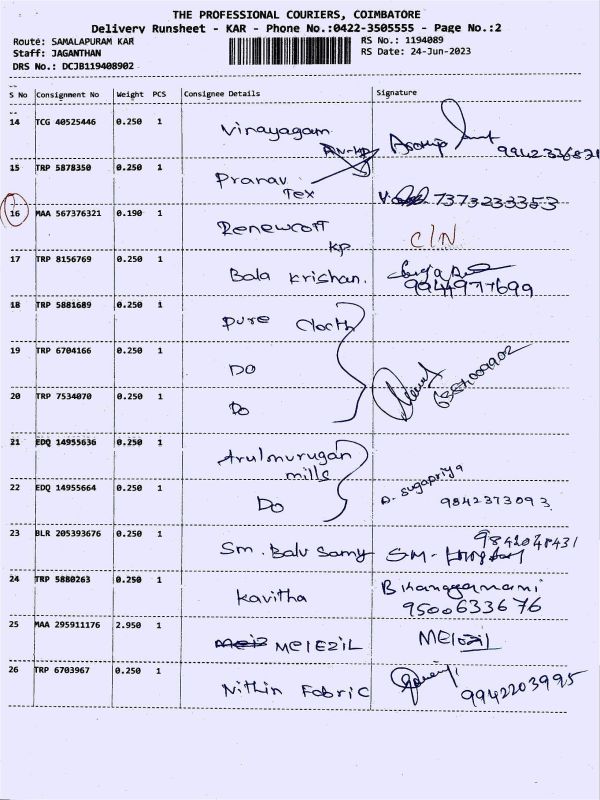 THE PROFESSIONAL COURIERS, COIMBATORE
Delivery Runsheet - KAR - Phone No.:0422-3505555 - Page No.:2
Route: SAMALAPURAM KAR RS No.: 1194089
Staff: JAGANTHAN RS Date: 24-Jun-2023
DRS No.: DCJB119408902
S No Consignment No Weight PCS Consignee Details Signature
14 TCG 40525446 0.250 1 Vinayagam
15 TRP 5878350 0.250 1 Pranav Tex 7373233353
16 MAA 567376321 0.190 1 Renewcott KP C/N
17 TRP 8156769 0.250 1 Bala Krishan. 9944977699
18 TRP 5881689 0.250 1 Pure Cloth
19 TRP 6704166 0.250 1 DO
20 TRP 7534070 0.250 1 Do
21 EDQ 14955636 0.250 1 Arulmurugan mills
22 EDQ 14955664 0.250 1 Do sugapriya 9842373093
23 BLR 205393676 0.250 1 Sm. Balu Samy SM- 9842048431
24 TRP 5880263 0.250 1 Kavitha 9500633676
25 MAA 295911176 2.950 1 MelEZIL
26 TRP 6703967 0.250 1 Nithin Fabric 9942203995